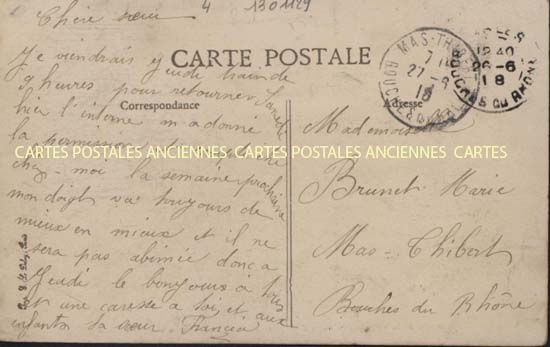 4 1301129
Chère sœur
Je viendrais jeudi train de
9 heures pour retourner Samedi
hier l'interne m a donné
la permission de
chez - moi la semaine prochaine
mon doigt va toujours de
mieux en mieux et il ne
sera pas abimée donc a
Jeudi le bonjours à tous
et une caresse a toi et aux
enfants ta sœur
CARTE POSTALE
Correspondance
Adresse
Mademoiselle
Brunet Marie
Mas = Thibert
Bouches du Rhône
MAS-THIBERT
27-6
18
BOUCHES DU RHONE
26-6
18
BOUCHES DU RHONE
CARTES POSTALES ANCIENNES CARTES POSTALES ANCIENNES CARTES